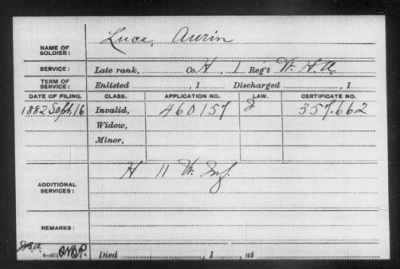 NAME OF SOLDIER: Luce, Aurin
SERVICE: Late rank, Co. H, 1 Reg't W. H. A.
TERM OF SERVICE: Enlisted , 1 Discharged , 1
DATE OF FILING. CLASS. APPLICATION NO. LAW. CERTIFICATE NO.
1882 Sept, 16 Invalid, 460157 357.662
Widow,
Minor,
ADDITIONAL SERVICES: H 11 W. Inf.
REMARKS:
Died , 1 , at